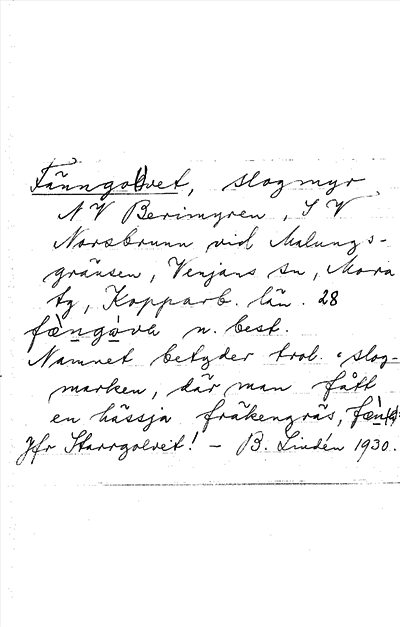 Fänngolvet, slogmyr
NV Berimyren, SV
Norsbrunn vid Malungs-
gränsen, Venjans sn, Mora
tg, Kopparb. län. 28
fæ̀ngå̀vǝ n. best.
Namnet betyder trol. "slog-
marken, där man fått
en hässja fräkengräs,
Jfr Starrgolvet! – B. Lindén 1930.